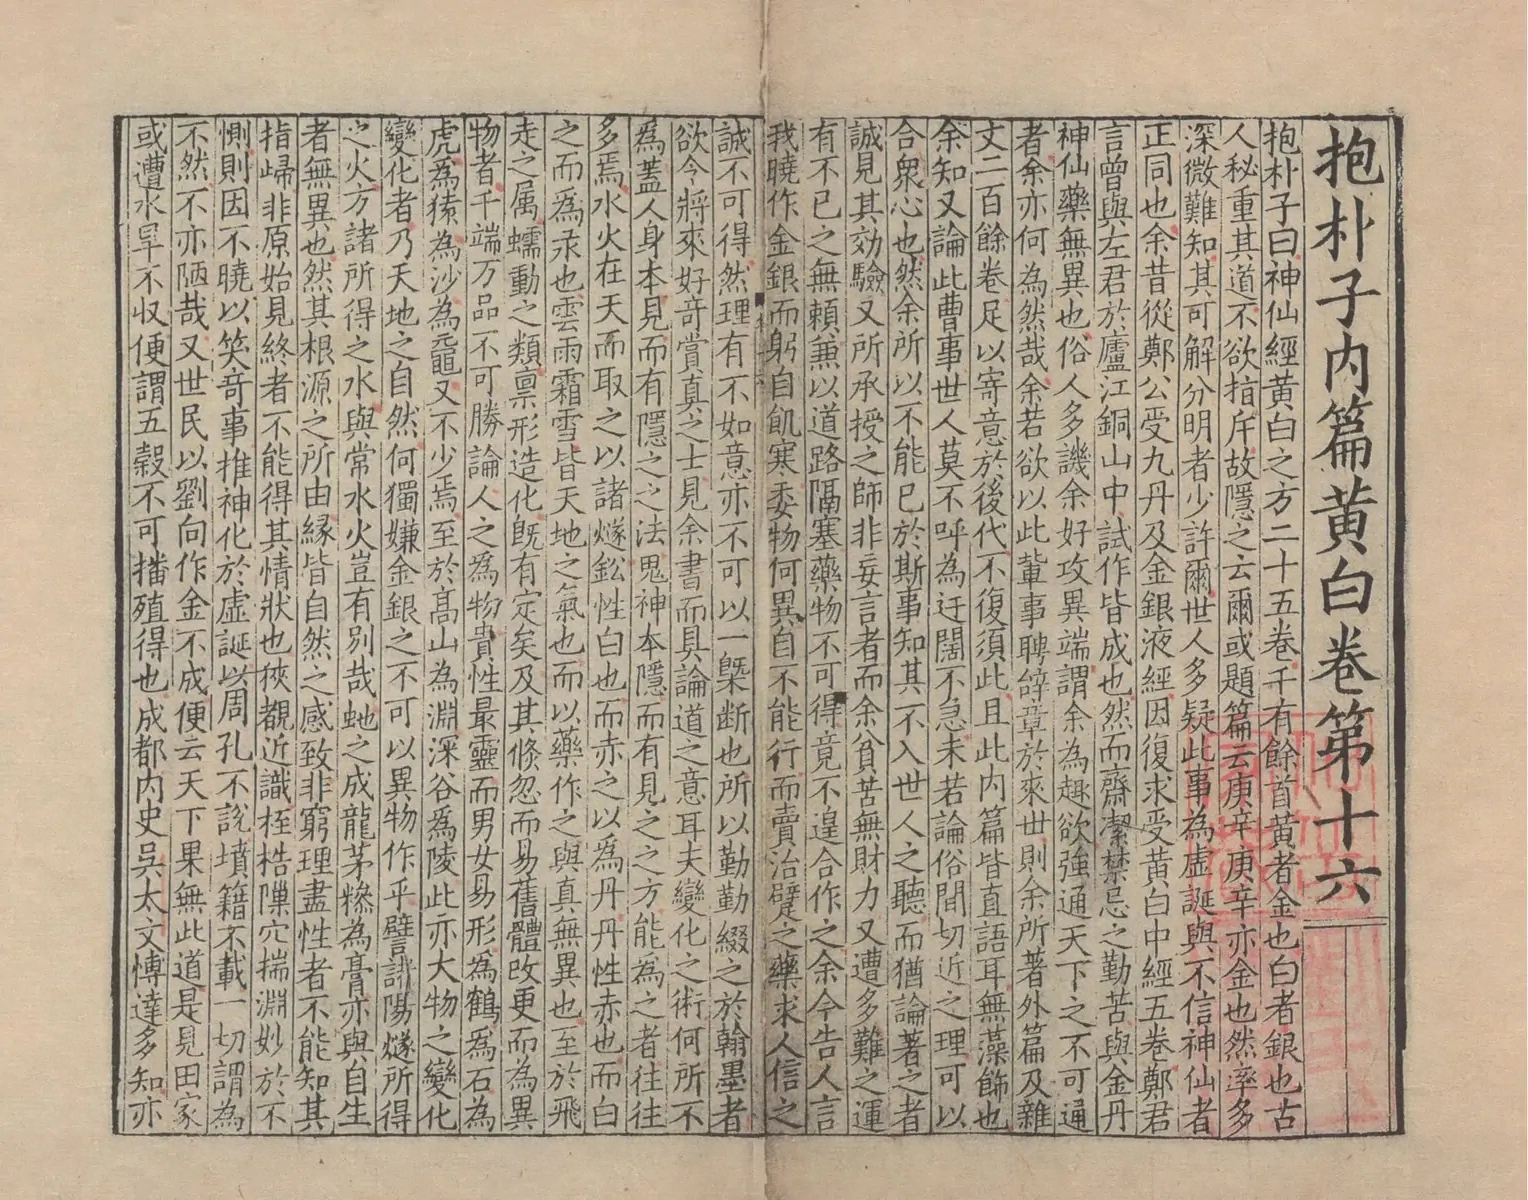 抱朴子内篇黄白卷第十六
抱朴子曰神仙經黄白之方二十五卷千有餘首黄者金也白者銀也古
人秘重其道不欲指斥故隱之云爾或題篇云庚辛庚辛亦金也然率多
深微難知其可解分明者少許爾世人多疑此事為虛誕與不信神仙者
正同也余昔從鄭公受九丹及金銀液經因復求受黄白中經五卷鄭君
言曾與左君於廬江銅山中試作皆成也然而齋潔禁忌之勤苦與金丹
神仙藥無異也俗人多譏余好攻異端謂余為趣欲強通天下之不可通
者余亦何為然哉余若欲以此輩事騁辝章於來世則余所著外篇及雜
文二百餘卷足以寄意於後代不復須此且此内篇皆直語耳無藻飾也
余知又論此曹事世人莫不呼為迂闊不急未若論俗間切近之理可以
合衆心也然余所以不能已於斯事知其不入世人之聽而猶論著之者
誠見其効驗又所承授之師非妄言者而余貧苦無財力又遭多難之運
有不已之無賴兼以道路隔塞藥物不可得竟不遑合作之余今告人言
我曉作金銀而躬自飢寒委物何異自不能行而賣治躄之藥求人信之
誠不可得然理有不如意亦不可以一槩断也所以勤勤綴之於翰墨者
欲令將來好竒賞真之士見余書而具論道之意耳夫變化之術何所不
為蓋人身本見而有隱之之法鬼神本隱而有見之之方能為之者往往
多焉水火在天而取之以諸燧鈆性白也而赤之以為丹丹性赤也而白
之而為汞也雲雨霜雪皆天地之氣也而以藥作之與真無異也至於飛
走之属蠕動之類禀形造化旣有定矣及其倏忽而易舊體改更而為異
物者千端万品不可勝論人之為物貴性最靈而男女易形為鶴為石為
虎為猿為沙為黿又不少焉至於髙山為淵深谷為陵此亦大物之變化
變化者乃天地之自然何獨嫌金銀之不可以異物作乎譬諸陽燧所得
之火方諸所得之水與常水火豈有别哉虵之成龍茅糝為膏亦與自生
者無異也然其根源之所由縁皆自然之感致非窮理盡性者不能知其
指歸非原始見終者不能得其情狀也狹覩近識桎梏隟穴揣淵妙於不
惻則因不曉以笑竒事推神化於虛誕以周孔不說墳籍不載一切謂為
不然不亦陋哉又世民以劉向作金不成便云天下果無此道是見田家
或遭水旱不収便謂五穀不可播殖得也成都内史吳太文愽達多知亦